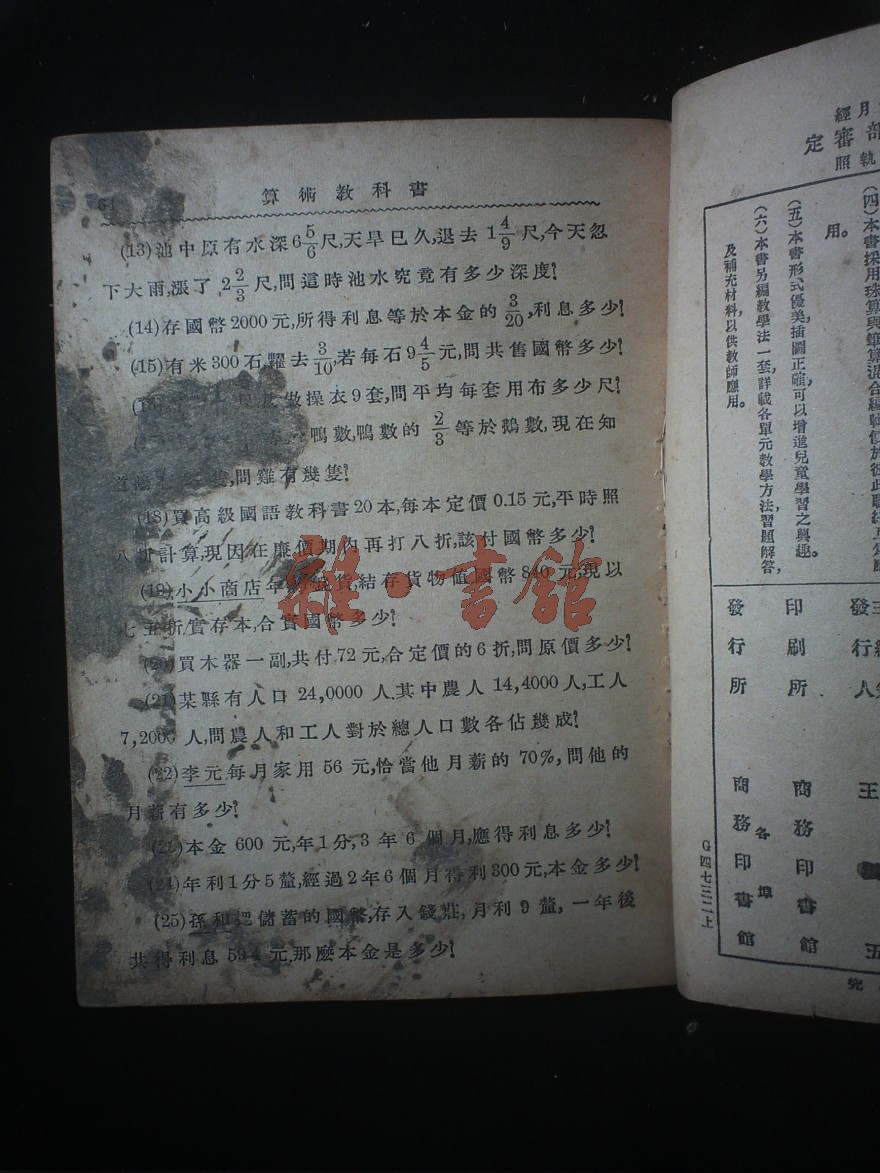 算術教科書
(13)池中原有水深6 5/6尺,天旱已久,退去 1 4/9 尺,今天忽
下大雨,漲了 2 2/3 尺,問這時池水究竟有多少深度?
(14)存國幣2000元,所得利息等於本金的 3/20,利息多少?
(15)有米300石,糶去 3/10,若每石9 4/5元,問共售國幣多少?
做操衣9套,問平均每套用布多少尺?
鴨數,鴨數的 2/3 等於鵝數,現在知
問雞有幾隻?
(18)買高級國語教科書20本,每本定價0.15元,平時照
八折計算,現因在廉價期內再打八折,該付國幣多少?
(19)小小商店年 貨結存貨物值國幣840元,現以
七五折,實存本,合實國幣多少?
(20)買木器一副,共付72元,合定價的6折,問原價多少?
(21)某縣有人口 24,0000 人,其中農人 14,4000人,工人
7,2000 人,問農人和工人對於總人口數各佔幾成?
(22)李元每月家用 56 元,恰當他月薪的 70%,問他的
月薪有多少?
(23)本金 600 元,年1分,3年6個月,應得利息多少?
(24)年利1分5釐,經過2年6個月得利300元,本金多少?
(25)孫和把儲蓄的國幣,存入錢莊,月利9釐,一年後
共得利息 594 元,那麼本金是多少?
雜·書館
月
經
部
審
定
執
照
(四)本書採用珠算與筆算混合編
用。
(五)本書形式優美,插圖正確,可以增進兒童學習之興趣。
(六)本書另編教學法一套,詳載各單元教學方法,習題解答,
及補充材料,以供教師應用。
發行人 王
印刷所 商務印書館
發行所 各埠 商務印書館
G四七三二上